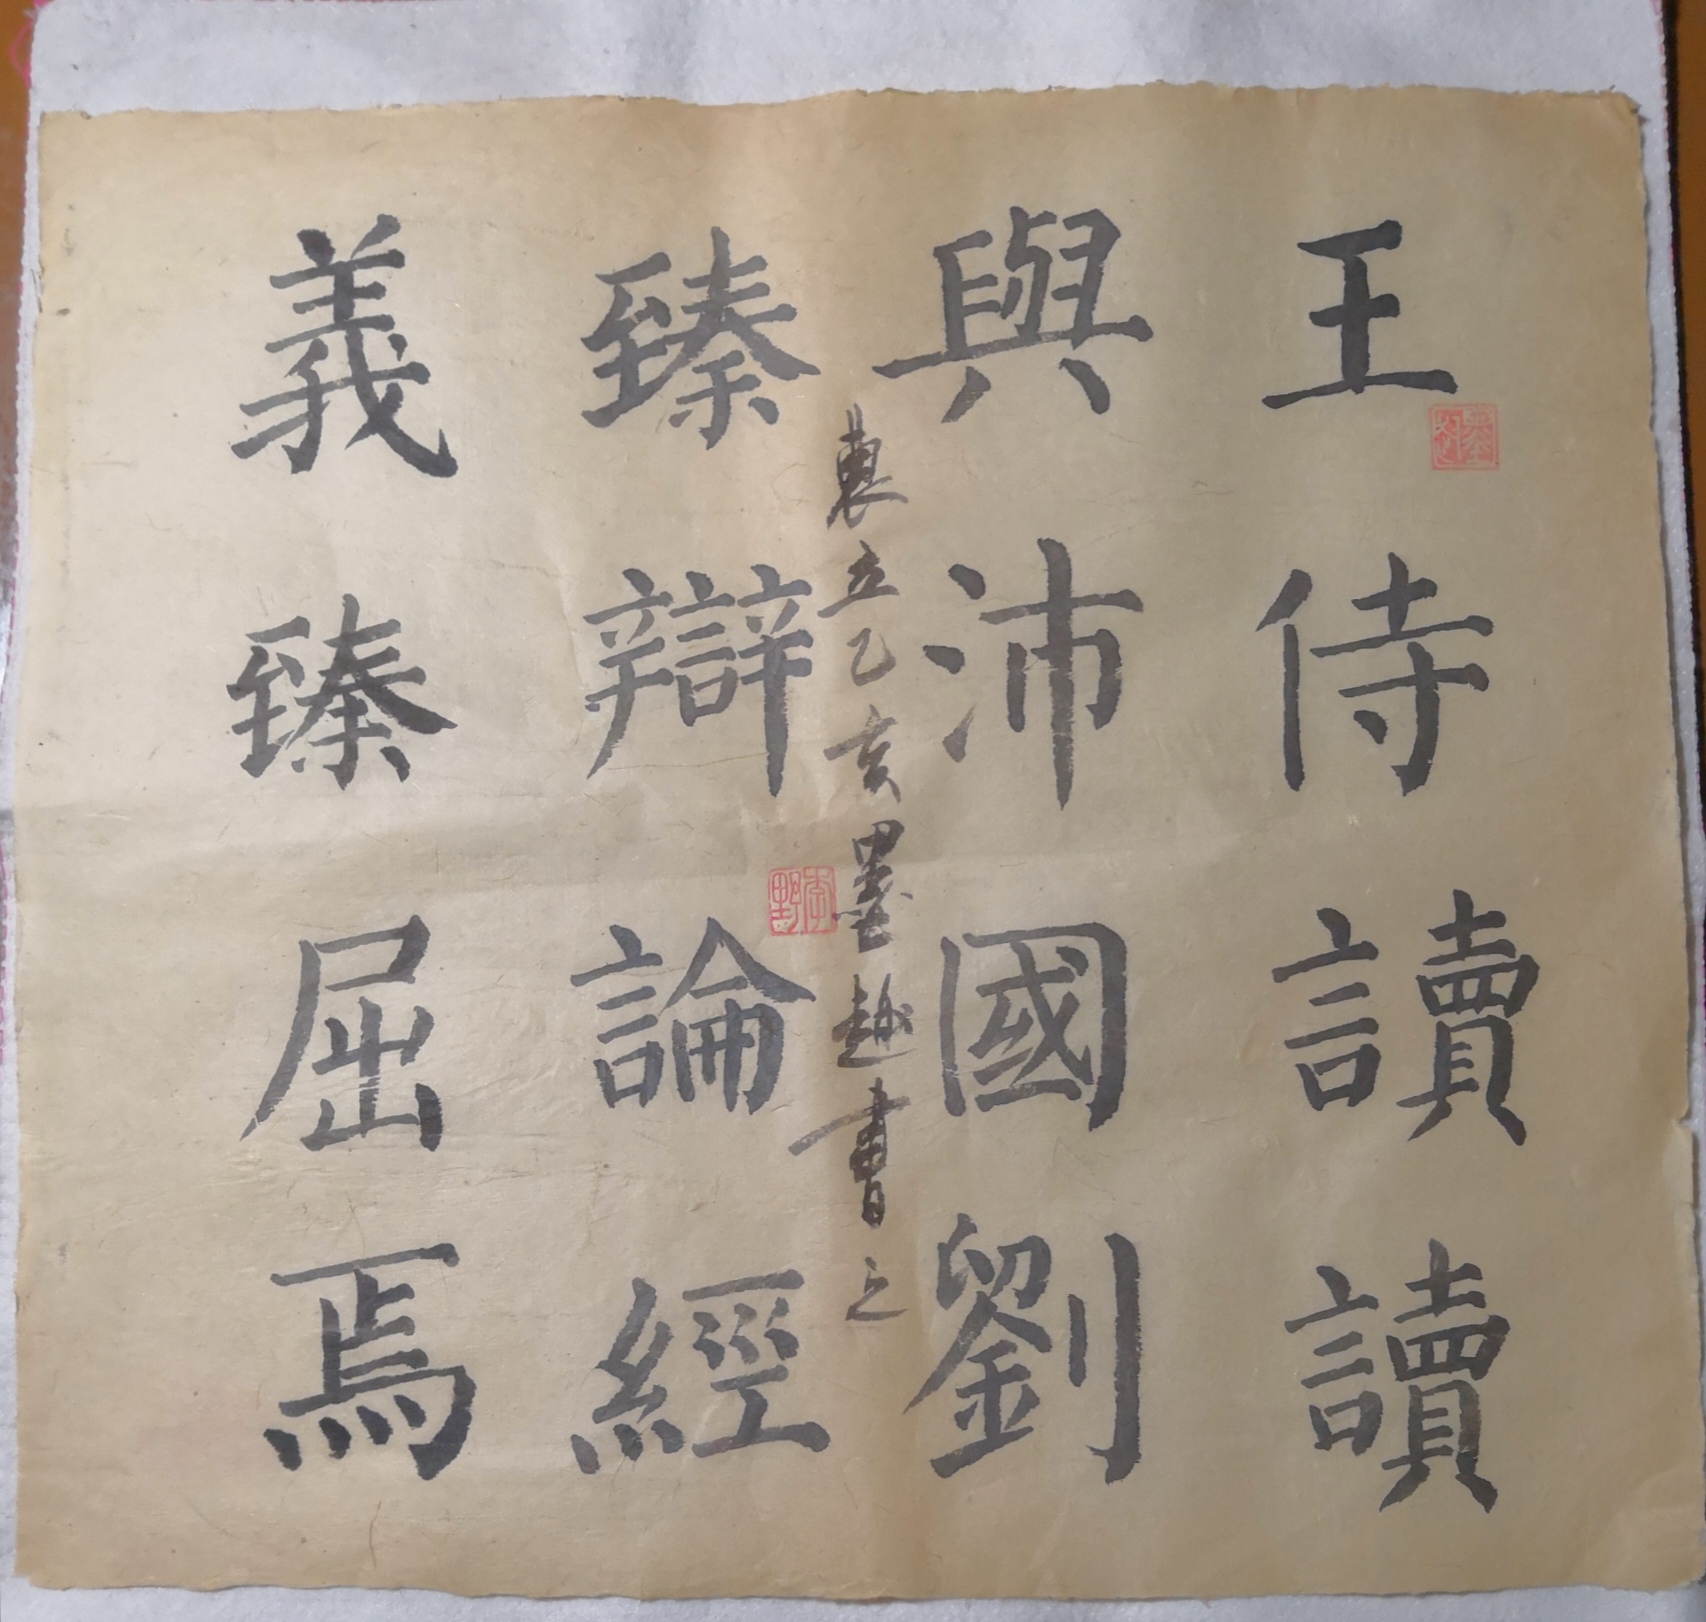 王侍讀讀
與沛國劉
立乙亥墨越書之
臻辯論經
義臻屈焉